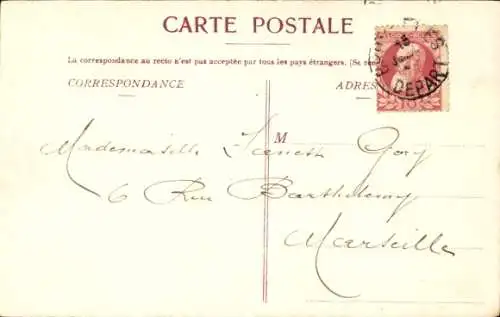 CARTE POSTALE
La correspondance au recto n'est pas acceptée par tous les pays étrangers. (Se ren
CORRESPONDANCE
ADRES
15
DEPART
10
M
Mademoiselle Gory
6 Rue Barthelemy
Marseille